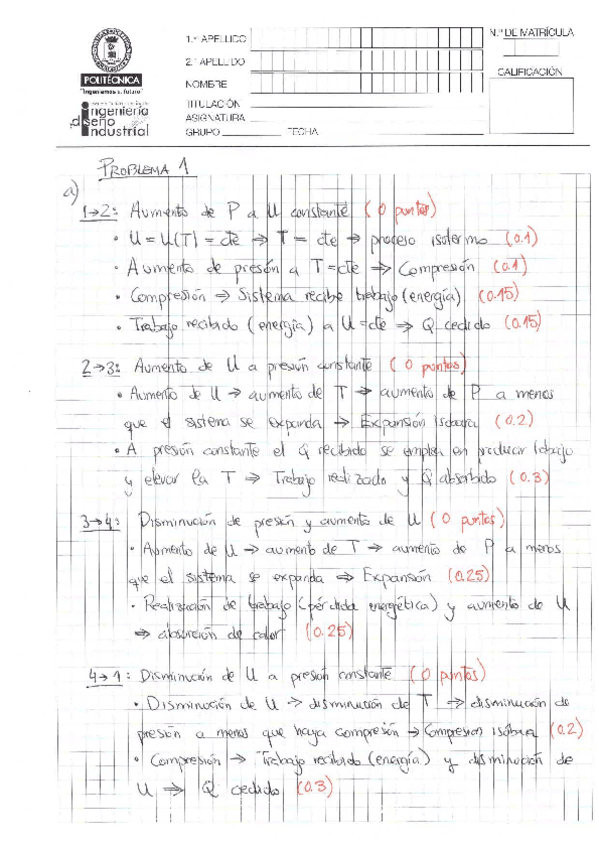 1.º APELLIDO
2.º APELLIDO
NOMBRE
TITULACIÓN
ASIGNATURA
GRUPO FECHA
N.º DE MATRÍCULA
CALIFICACIÓN
POLITÉCNICA
"Ingeniamos el futuro"
ingeniería
diseño
industrial
PROBLEMA 1
a)
1→2: Aumento de P a U constante (0 puntos)
• U = U(T) = cte ⇒ T = cte → proceso isotermo (0.1)
• Aumento de presión a T=cte ⇒ Compresión (0.1)
• Compresión ⇒ Sistema recibe trabajo (energía) (0.15)
• Trabajo recibido (energía) a U=cte ⇒ Q cedido (0.15)
2→3: Aumento de U a presión constante (0 puntos)
• Aumento de U → aumento de T → aumento de P a menos
que el sistema se expanda → Expansión isóbara (0.2)
• A presión constante el Q recibido se emplea en producir trabajo
y elevar la T ⇒ Trabajo realizado y Q absorbido (0.3)
3→4: Disminución de presión y aumento de U (0 puntos)
• Aumento de U → aumento de T → aumento de P a menos
que el sistema se expanda ⇒ Expansión (0.25)
• Realización de trabajo (pérdida energética) y aumento de U
⇒ absorción de calor (0.25)
4→1: Disminución de U a presión constante (0 puntos)
• Disminución de U → disminución de T → disminución de
presión a menos que haya compresión → Compresión isóbara (0.2)
• Compresión → Trabajo recibido (energía) y disminución de
U ⇒ Q cedido (0.3)